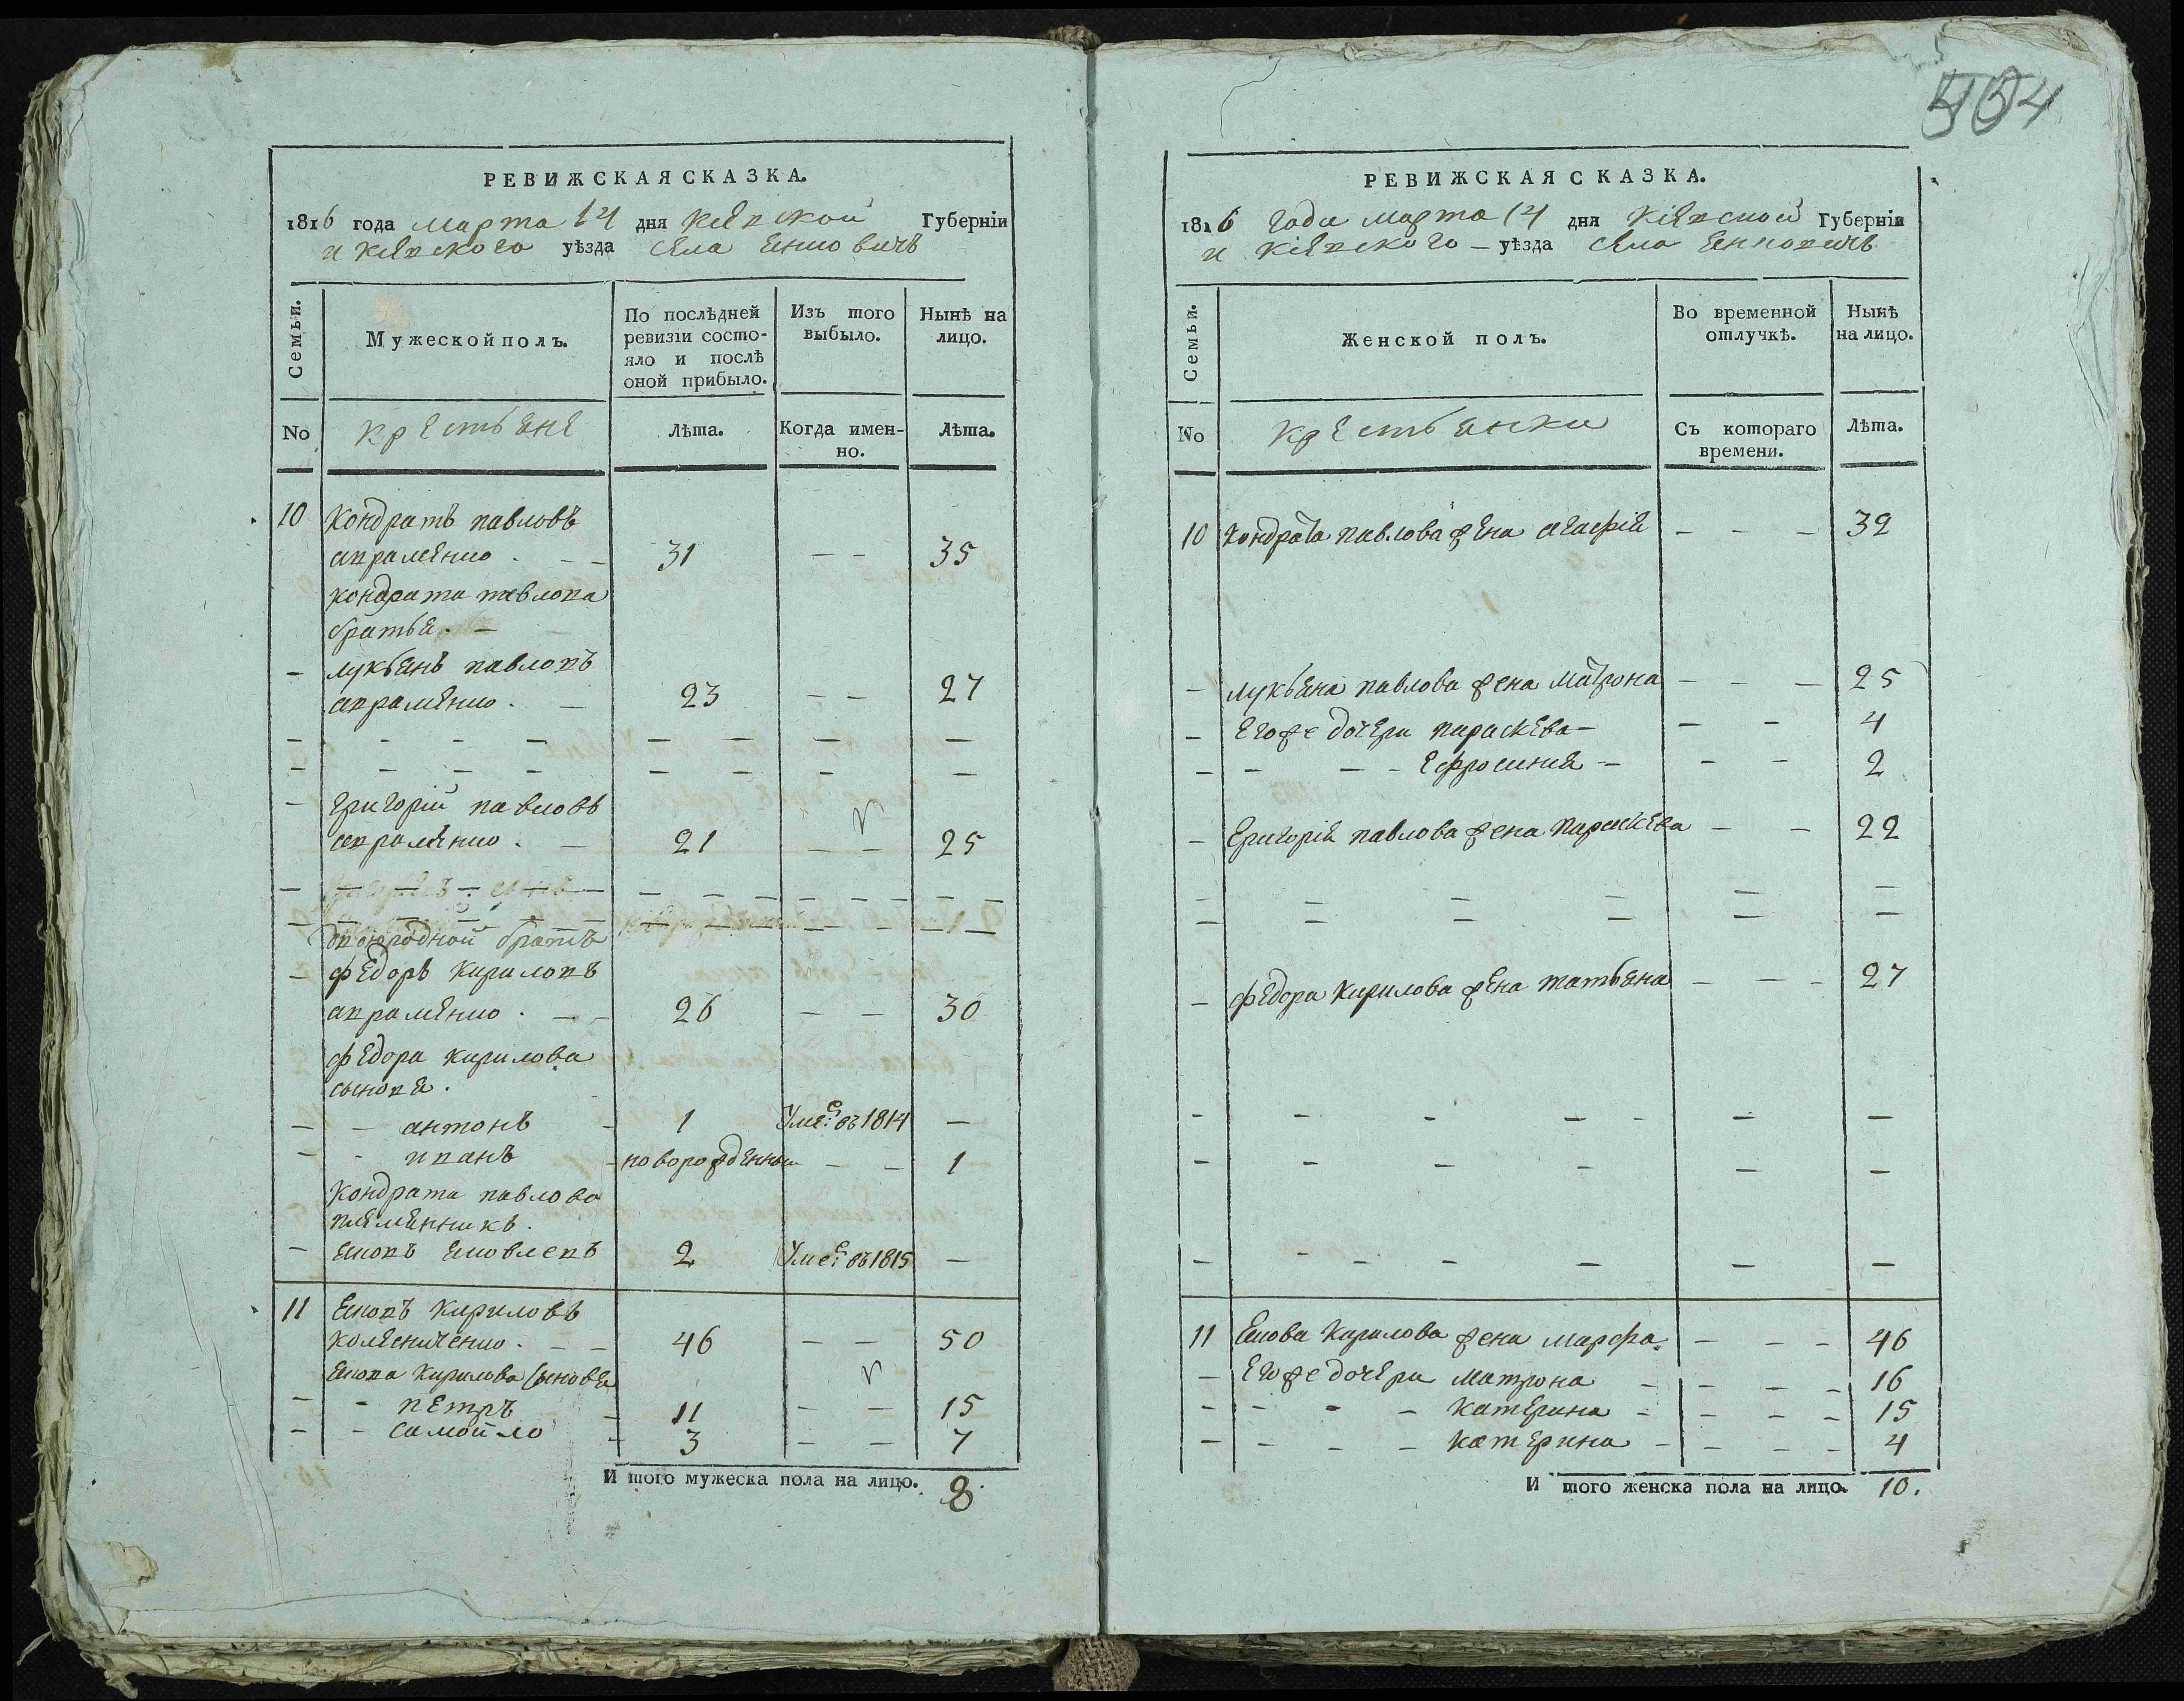 504
РЕВИЖСКАЯ СКАЗКА.
1816 года марта 14 дня Кіевской Губерніи
и Кіевского уѣзда села
Семьи.
Мужеской полъ.
По послѣдней
ревизіи состо-
яло и послѣ
оной прибыло.
Изъ того
выбыло.
Нынѣ на
лицо.
No
крестьяне
Лѣта.
Когда имен-
но.
Лѣта.
10 Кондратъ павловъ
авраменко . — — 31 — — 35
кондрата павлова
братья . —
— лукьянъ павловъ
авраменко . — 23 — — 27
— григорій павловъ
авраменко . — 21 — — 25
двоюродной братъ
— федоръ кириловъ
авраменко . — — 26 — — 30
федора кирилова
сыновя .
— — антонъ — 1 Уме: въ 1814 —
— - иванъ - новорожденны — — 1
Кондрата павлова
племянникъ .
— яковъ яковлевъ 2 Уме: въ 1815 —
11 яковъ Кириловъ
колесниченко . — — 46 — — 50
якова Кирилова сыновя
— - петръ — 11 — — 15
— - самойло - 3 — — 7
И того мужеска пола на лицо. 8
РЕВИЖСКАЯ СКАЗКА.
1816 года марта 14 дня Кіевской Губерніи
и Кіевского — уѣзда села
Семьи.
Женской полъ.
Во временной
отлучкѣ.
Нынѣ
на лицо.
No
крестьянки
Съ котораго
времени.
Лѣта.
10 Кондрата павлова жена агафія — — — 32
— лукьяна павлова жена матрона — — — 25
— его же дочери параскева — — — 4
— — — - Ефросиния — — - 2
— григорія павлова жена параскева — — 22
— федора Кирилова жена татьяна — — - 27
11 якова Кирилова жена марфа. — — — 46
— его же дочери матрона — — — — 16
- - - - катерина - — — — 15
— - — — катерина — — — — 4
И того женска пола на лицо. 10.